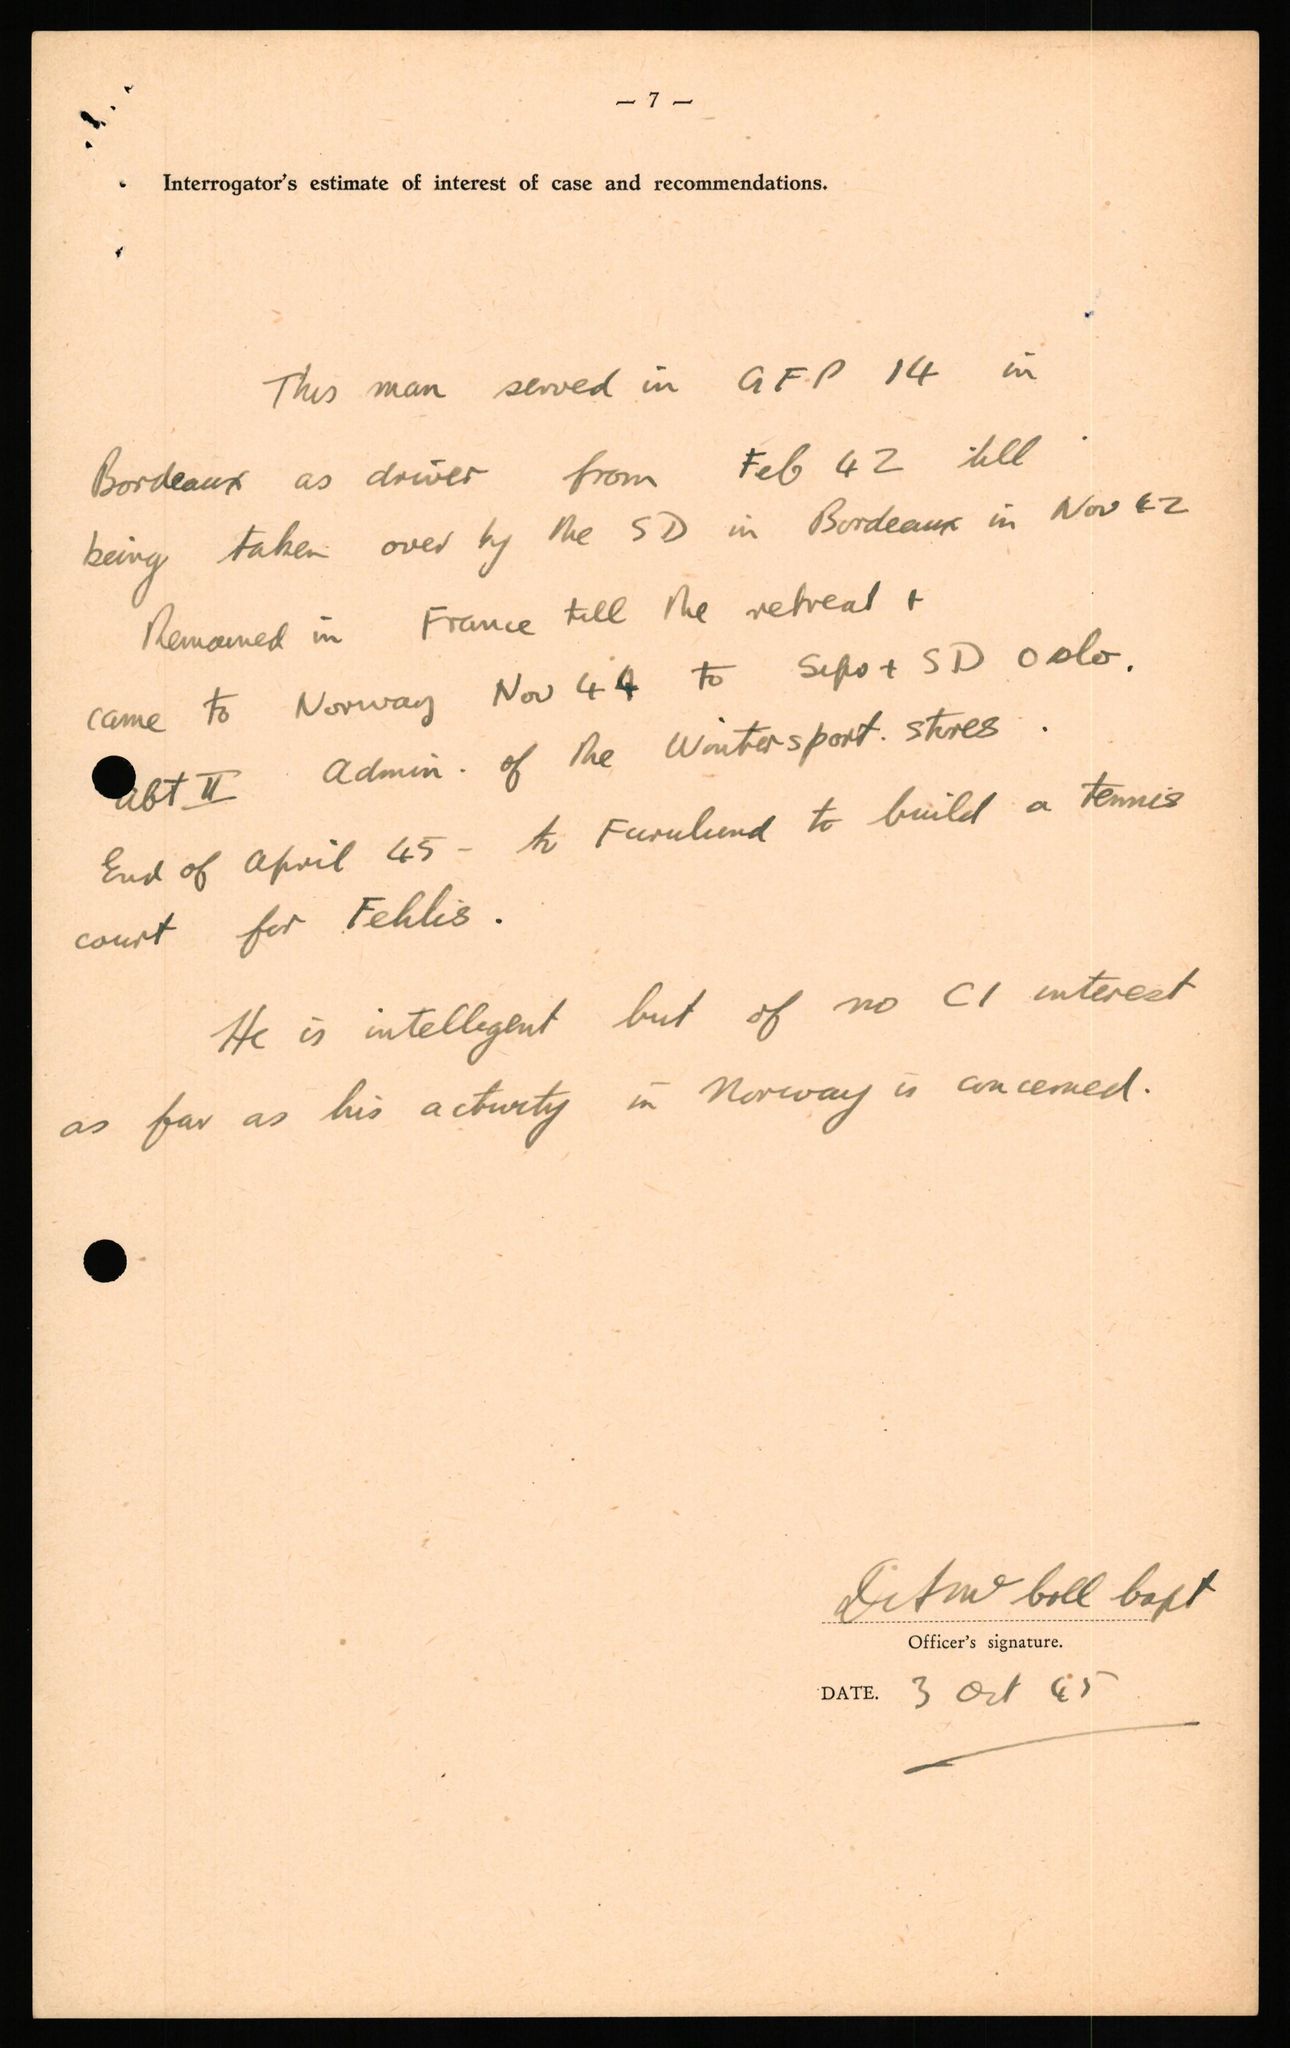 — 7 —
Interrogator's estimate of interest of case and recommendations.
This man served in GFP 14 in
Bordeaux as driver from Feb 42 till
being taken over by the SD in Bordeaux in Nov 42
Remained in France till the retreat +
came to Norway Nov 44 to Sipo + SD Oslo.
Abt II Admin. of the Wintersport. stores.
End of April 45 - to Furulund to build a tennis
court for Fehlis.
He is intelligent but of no CI interest
as far as his activity in Norway is concerned.
Coll Capt
Officer's signature.
DATE. 3 Oct 45